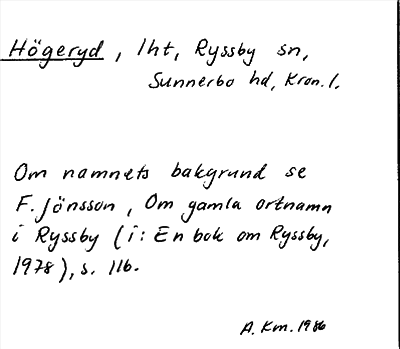 Högeryd, lht, Ryssby sn,
Sunnerbo hd, Kron. l.
Om namnets bakgrund se
F. Jönsson, Om gamla ortnamn
i Ryssby (i: En bok om Ryssby,
1978), s. 116.
A. Km. 1986